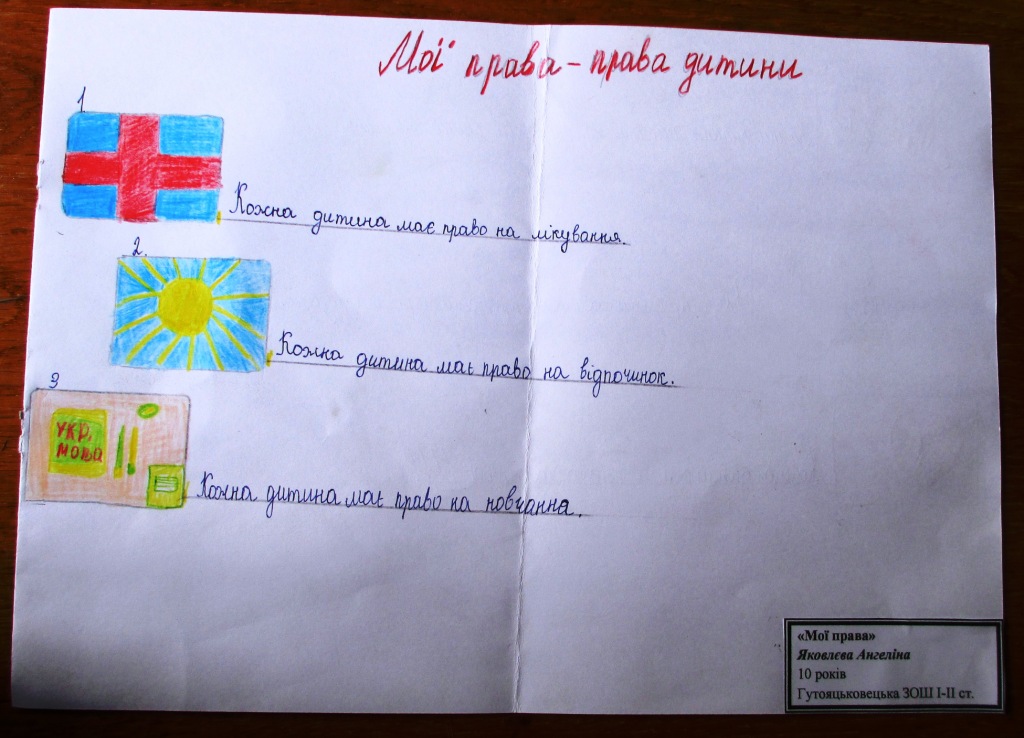 Мої права - права дитини
1
Кожна дитина має право на лікування.
2.
Кожна дитина має право на відпочинок.
3
УКР.
мова
Кожна дитина має право на новчання.
«Мої права»
Яковлєва Ангеліна
10 років
Гутояцьковецька ЗОШ І-ІІ ст.